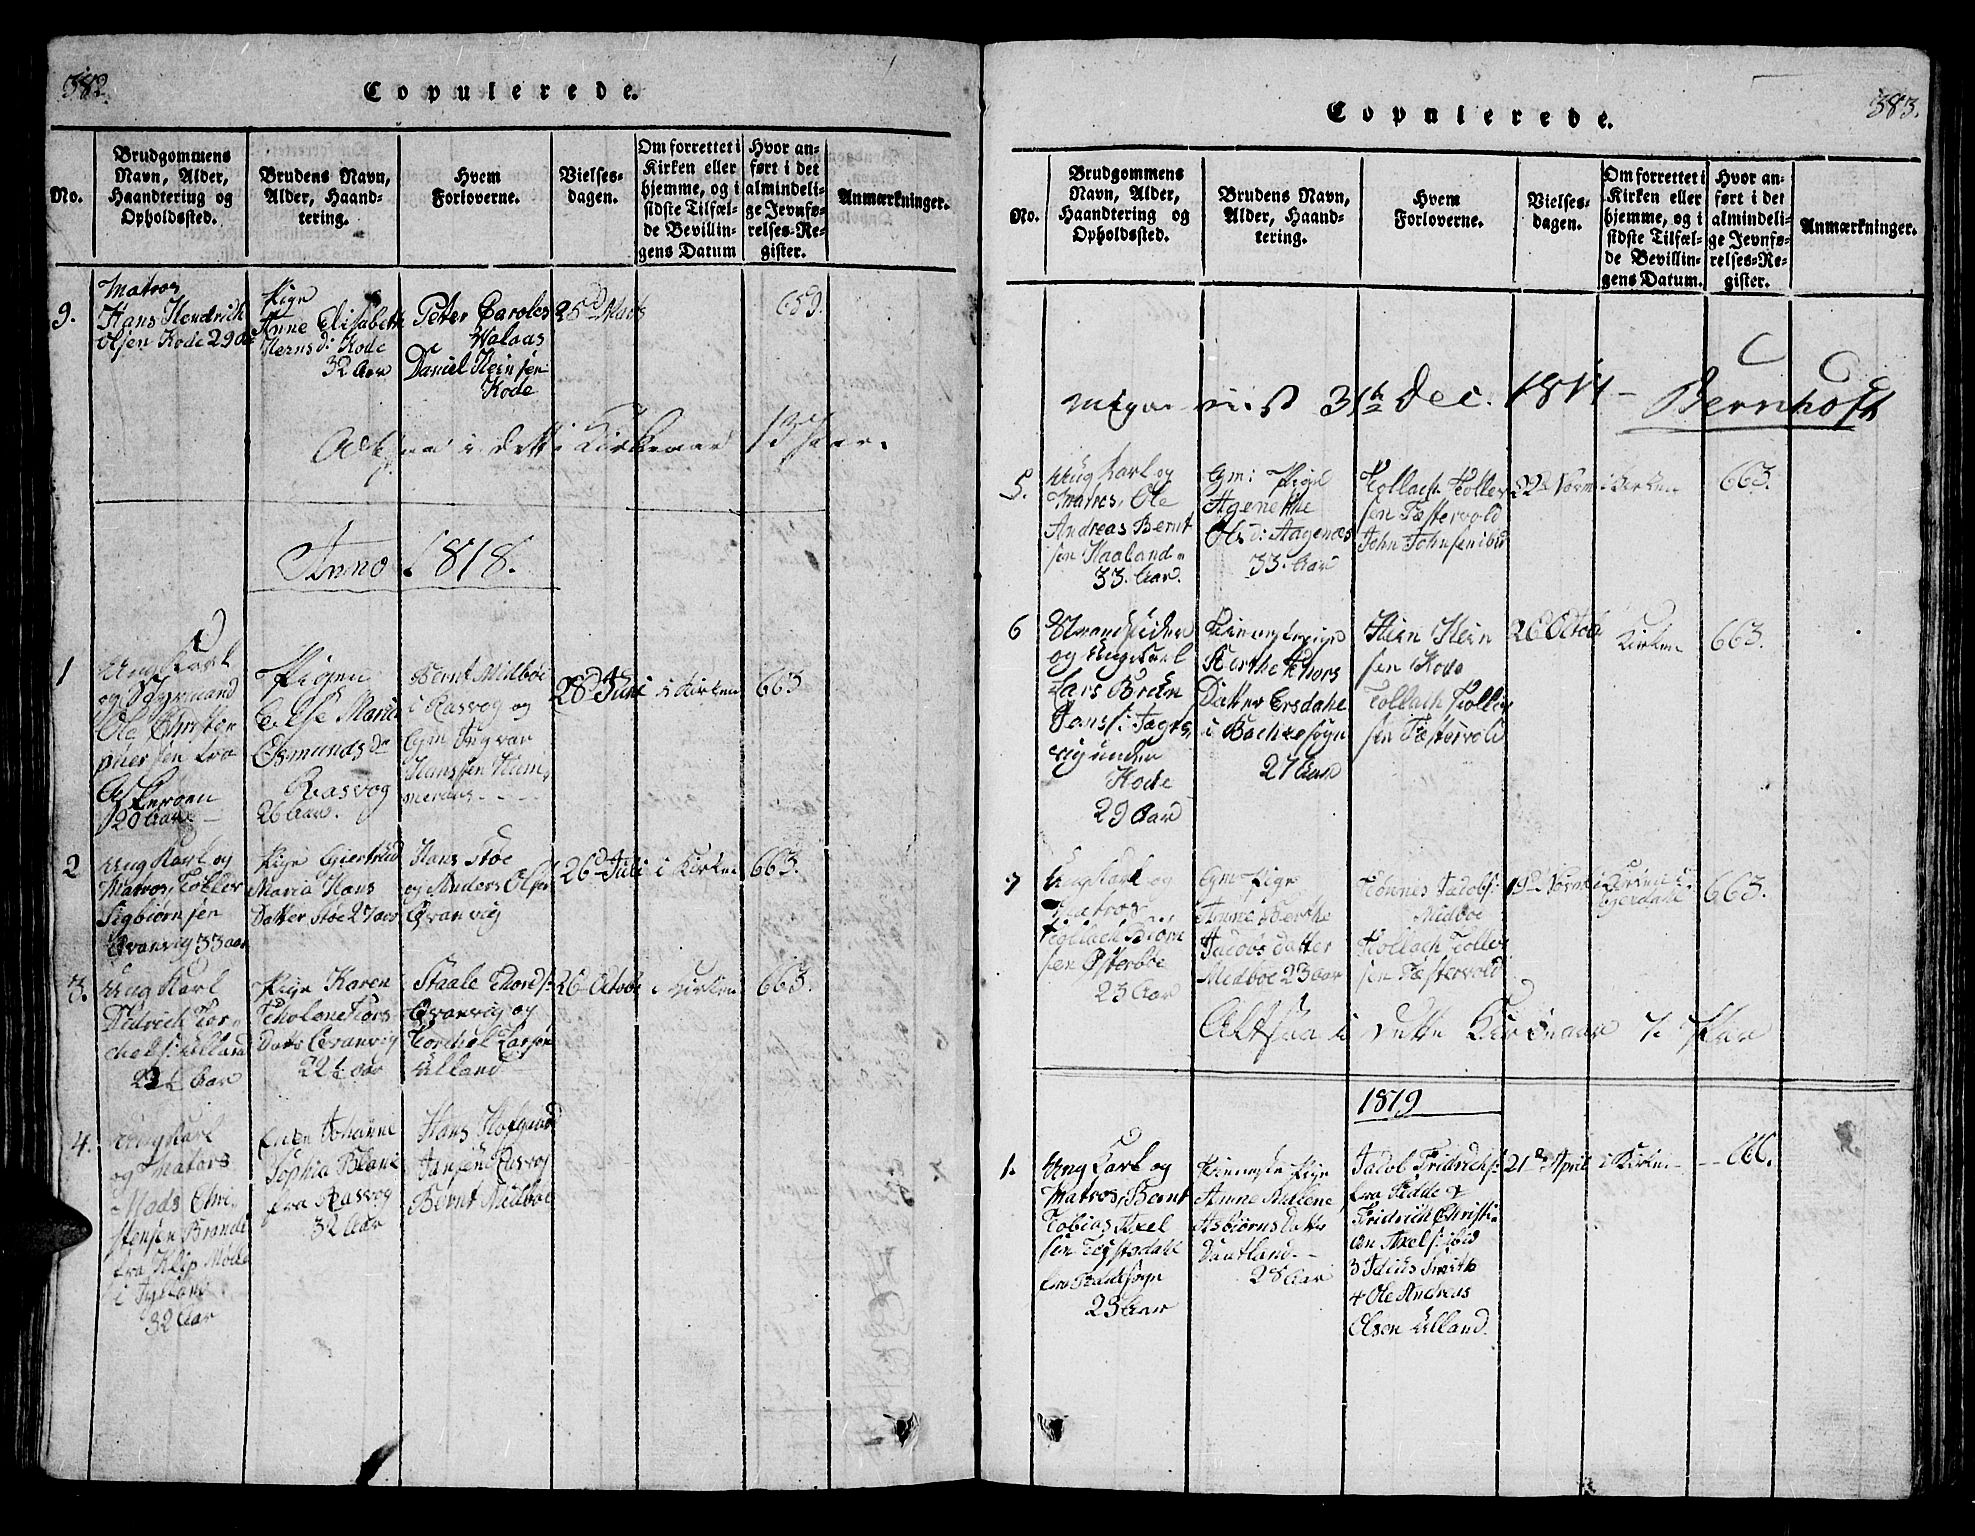 382.
Copulerede.
No.
Brudgommens Navn, Alder, Haandtering og Opholdssted.
Brudens Navn, Alder, Haandtering.
Hvem Forloverne.
Vielses-dagen.
Om forrettet i Kirken eller hjemme, og i sidste Tilfælde Bevillingens Datum
Hvor anført i det almindelige Jevnførelses-Register.
Anmærkninger.
9.
Matros
Hans Hendrich
Olsen Kode 29 Aar
Pige
Anne Elisabeth
Kernsd: Kode
32 Aar
Peter Caroles
Walaas
Daniel Hein sen
Kode
25d Marts
659.
Altsaa i dette Kirkeaar 13 Par.
Anno 1818.
1
Ung Karl
og Styrmand
Ole Christop
pher sen fra
Askeroen
20 Aar
Pigen
Else Maria
Osmunds Dr
Rasvog
26 Aar.
Bernt Midboe
i Rasvog og
Gm Ingvar
Hanssen Ham
meraas
28d Juni
i Kirken
663
2
Ung Karl og
Matros, Toller
Sigbiørnsen
Qvanvig 33 aar
Pige Giertrud
Maria Hans
Datter Støe 27 aar
Hans Støe
og Anders Olsen
Qvanvig
26d Juli
i Kirken
663.
3.
Ung Karl
Didrich Tor
chels: Ulland
22½ Aar
Pige Karen
Tholene Tors
Datr Qvanvig
22½ aar
Staale Thords:
Qvanvig og
Torchel Larsen
Ulland
26 Octobr
i Kirken
663.
4.
Ung Karl
og Mators
Mads Chri
stensen Brandt
fra Klip Møde
i Jylland
32 Aar
Enken Johanne
Sophia Blanc
fra Rasvog
32 Aar
Hans Hofgaard
Jansen Rasvog
Bernt Midboe
383.
Copulerede.
No.
Brudgommens Navn, Alder, Haandtering og Opholdssted.
Brudens Navn, Alder, Haandtering.
Hvem Forloverne.
Vielses-dagen.
Om forrettet i Kirken eller hjemme, og i sidste Tilfælde Bevillingens Datum.
Hvor anført i det almindelige Jevnførelses-Register.
Anmærkninger.
31te Dec. 1817 - Bernhoft
5.
Ung Karl og
Matros, Ole
Andreas Bernt
sen Haaland
33. Aar.
Gm: Pige
Agenethe
Olsd: Aagenæs
33. Aar
Tollach Toller
sen Fæstervold
John Johnsen ibid
22d Novm
i Kirken
663.
6
Strandsidder
og Ungkarl
Lars Brein
Janss: Jagts
vig under
Kode
29 Aar
Kierneste Pige
Berthe Thors
Datter Ersdahl
i Bachesogn
27 Aar
Hein Hein
sen Kode
Tollach Toller
sen Fæstervold
26 Octob
Kirken
663.
7
Ung Karl og
Matros
Tollach Biørn
sen Østerbøe
23 Aar
Gm Pige
Anne Berthe
Jacobs datter
Medboe 23 aar
Tønnes Jacobs:
Midboe
Tollach Toller
sen Fæstervold
19d Novm
i Kirken
663.
Altsaa i dette Kirkeaar 7. Par
1819
1.
Ung Karl og
Matros, Bernt
Tobias Axel
sen Tegtsdahl
fra Feddesogn
23 Aar
Kierneste Pige
Anne Malene
Asbiørns Datter
Dautland
28 Aar
Jacob Fridrichs:
fra Fedde &
Fridrich Christi
an Axels: ibid
3 Julius Smith
4 Ole Andreas
Olsen Ulland.
21de April
i Kirken
666.